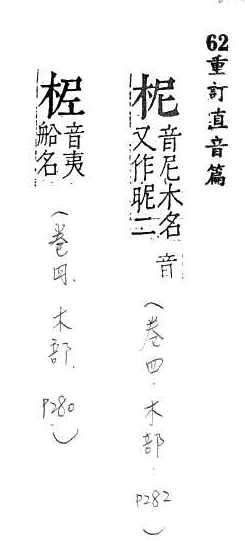 62重訂直音篇
柅音尼木名又作昵二音(卷四.木部.P282)
音夷船名(卷四.木部.P280)